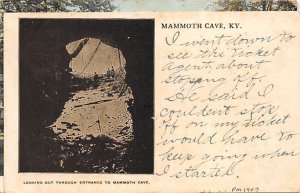 MAMMOTH CAVE, KY.
I went down to
see the Ticket
Agent about
Stoping off.
He said I
couldent stop
off on my ticket
would have to
keep going when
I started
PM 1907
LOOKING OUT THROUGH ENTRANCE TO MAMMOTH CAVE.